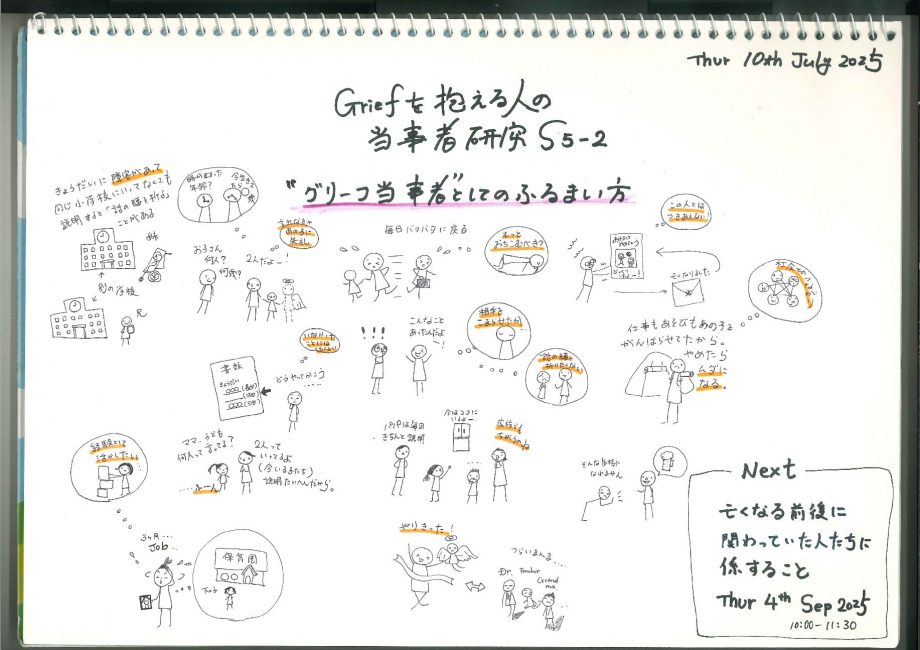 Thur 10th July 2025
Griefを抱える人の
当事者研究 S5-2
"グリーフ当事者"としてのふるまい方
きょうだいに障害があって
同じ小学校にいってなくても
説明すると「話の腰を折る」
ことがある
時が止まった
年齢?
姉
別の学校
兄
お子さん
何人?
何歳?
2人だよー!
それなるとか
あの子に
失礼
毎日バタバタに戻る
もっと
おちこむべき?
この人とは
つきあえない!
亡くなりました
仕事もあそびもあの子と
がんばらせてたから。
やめたら
ムダに
なる。
書類
きょうだい
どうやってかこう
いなかった
ことにはしたくない
!!!
こんなこと
あったんだよ
ー!
相手を
こまらせたかな
話の腰を
折りたくない
経験として
活かしたい
ママ、子ども
何人って言ってる?
.....ふーん
2人って
いってるよ
(今いる子たち)
説明たいへんだから。
パパは毎回
きちんと説明
今はココに
いるよー
夫婦でも
ちがうのね
そんな気持に
なれません
3ヶ月
Job...
保育園
やりきった!
つらいまんま...
Dr.
Teacher
Grand
ma
Next
亡くなる前後に
関わっていた人たちに
係すること
Thur 4th Sep 2025
10:00-11:30